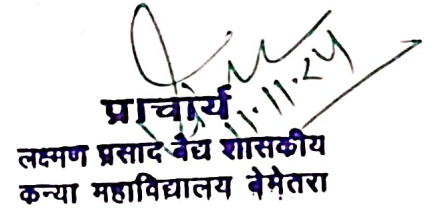 11.11.24
प्राचार्य
लक्ष्मण प्रसाद वैद्य शासकीय
कन्या महाविद्यालय बेमेतरा